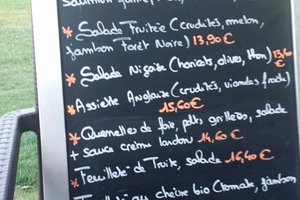 * Salade Fruitée (crudités, melon,
jambon Forêt Noire) 13,90 €
* Salade Niçoise (haricots, olives, thon) 13,40 €
* Assiette Anglaise (crudités, viandes froides)
15,60 €
* Quenelles de foie, pdts grillées, salade
+ sauce crème lardon 14,60 €
* Feuilleté de Truite, salade 16,40 €
* Feuilleté au chèvre bio (tomate, jambon